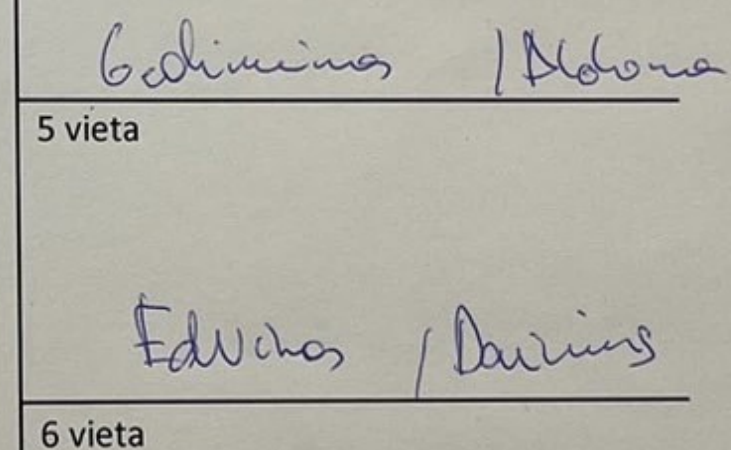 Gediminas / Aldona
5 vieta
Edvinas / Dainius
6 vieta